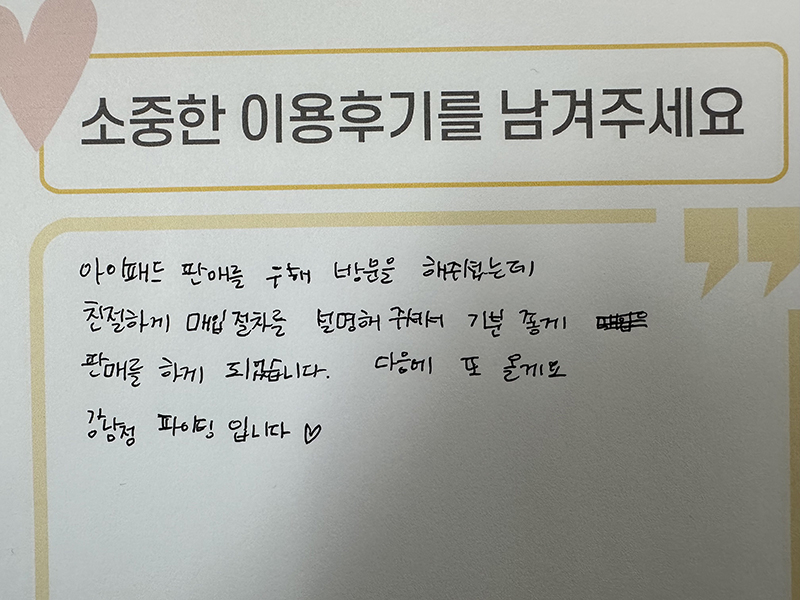 소중한 이용후기를 남겨주세요
아이패드 판매를 위해 방문을 했는데
친절하게 매입절차를 설명해 주셔서 기분 좋게
판매를 하게 되었습니다. 다음에 또 올게요
강남점 파이팅 입니다 ♡